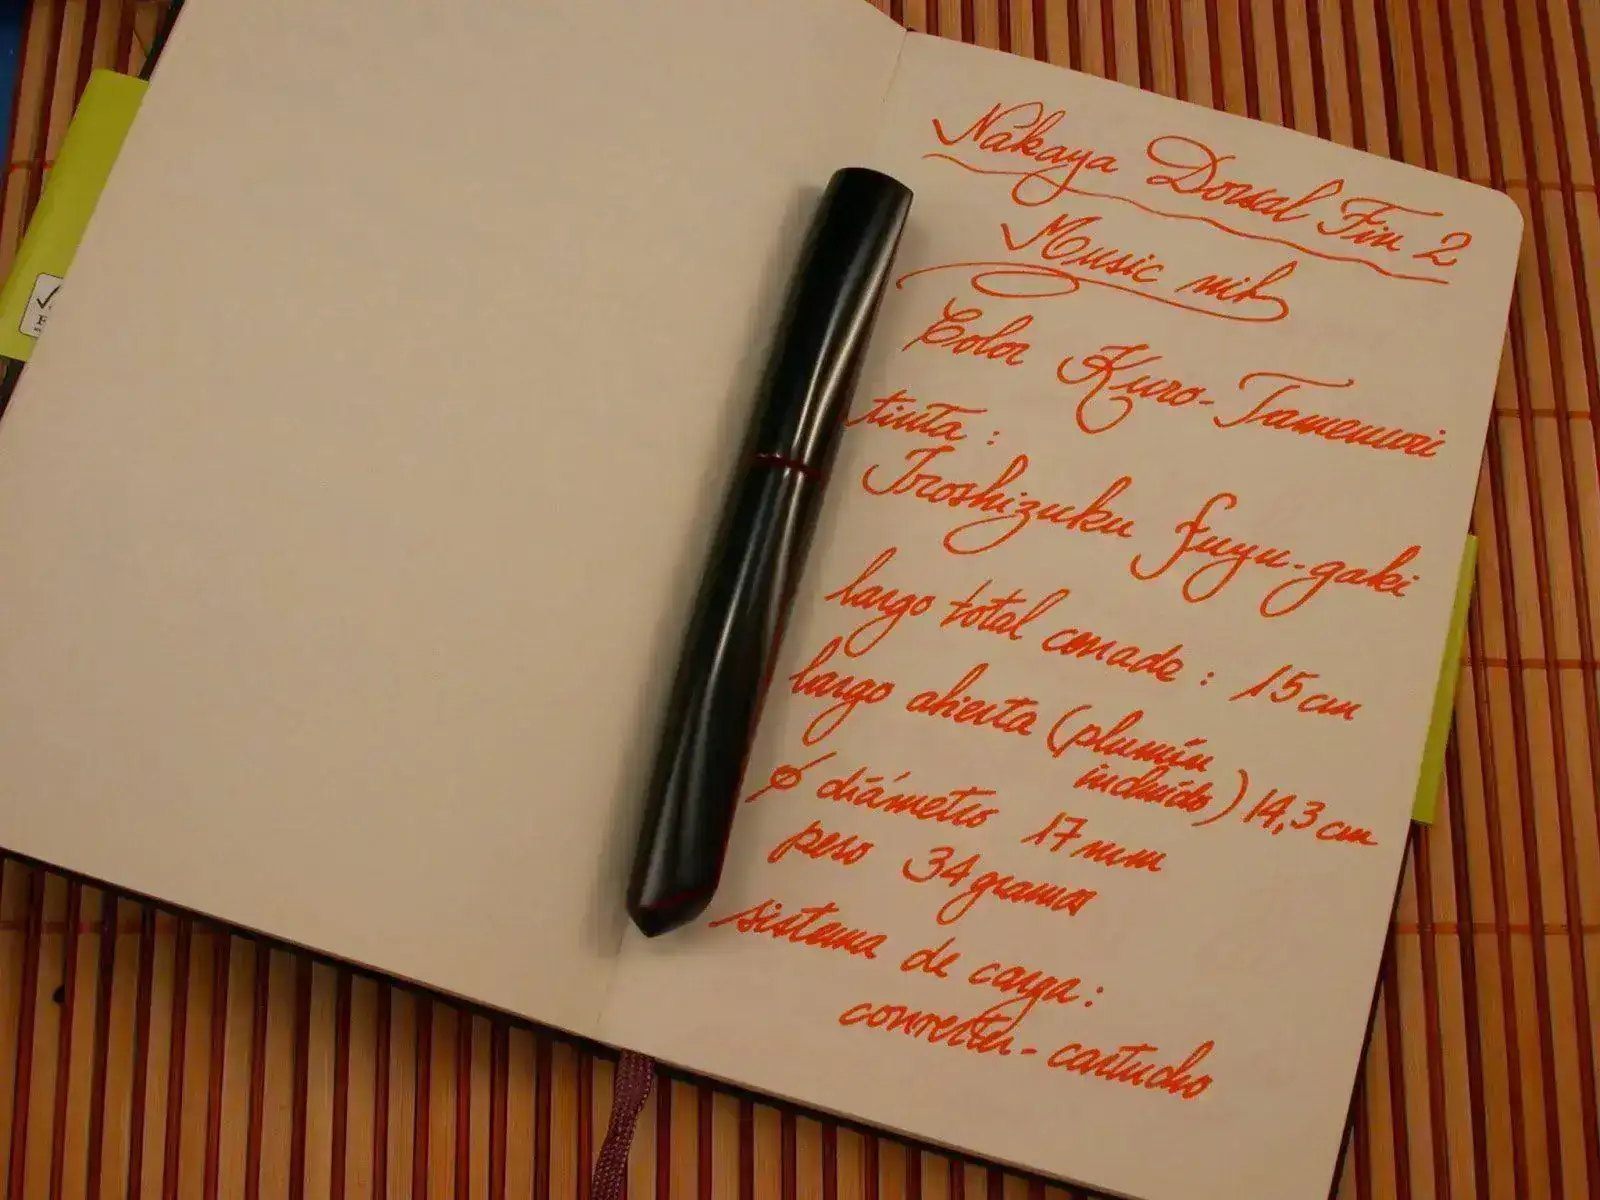 Nakaya Dorsal Fin 2
Music nib
Color Kuro-Tamenuri
tinta:
Iroshizuku fuyu-gaki
largo total cerrada: 15 cm
largo abierta (plumín
incluído) 14,3 cm
ø diámetro 17 mm
peso 34 gramos
sistema de carga:
converter-cartucho